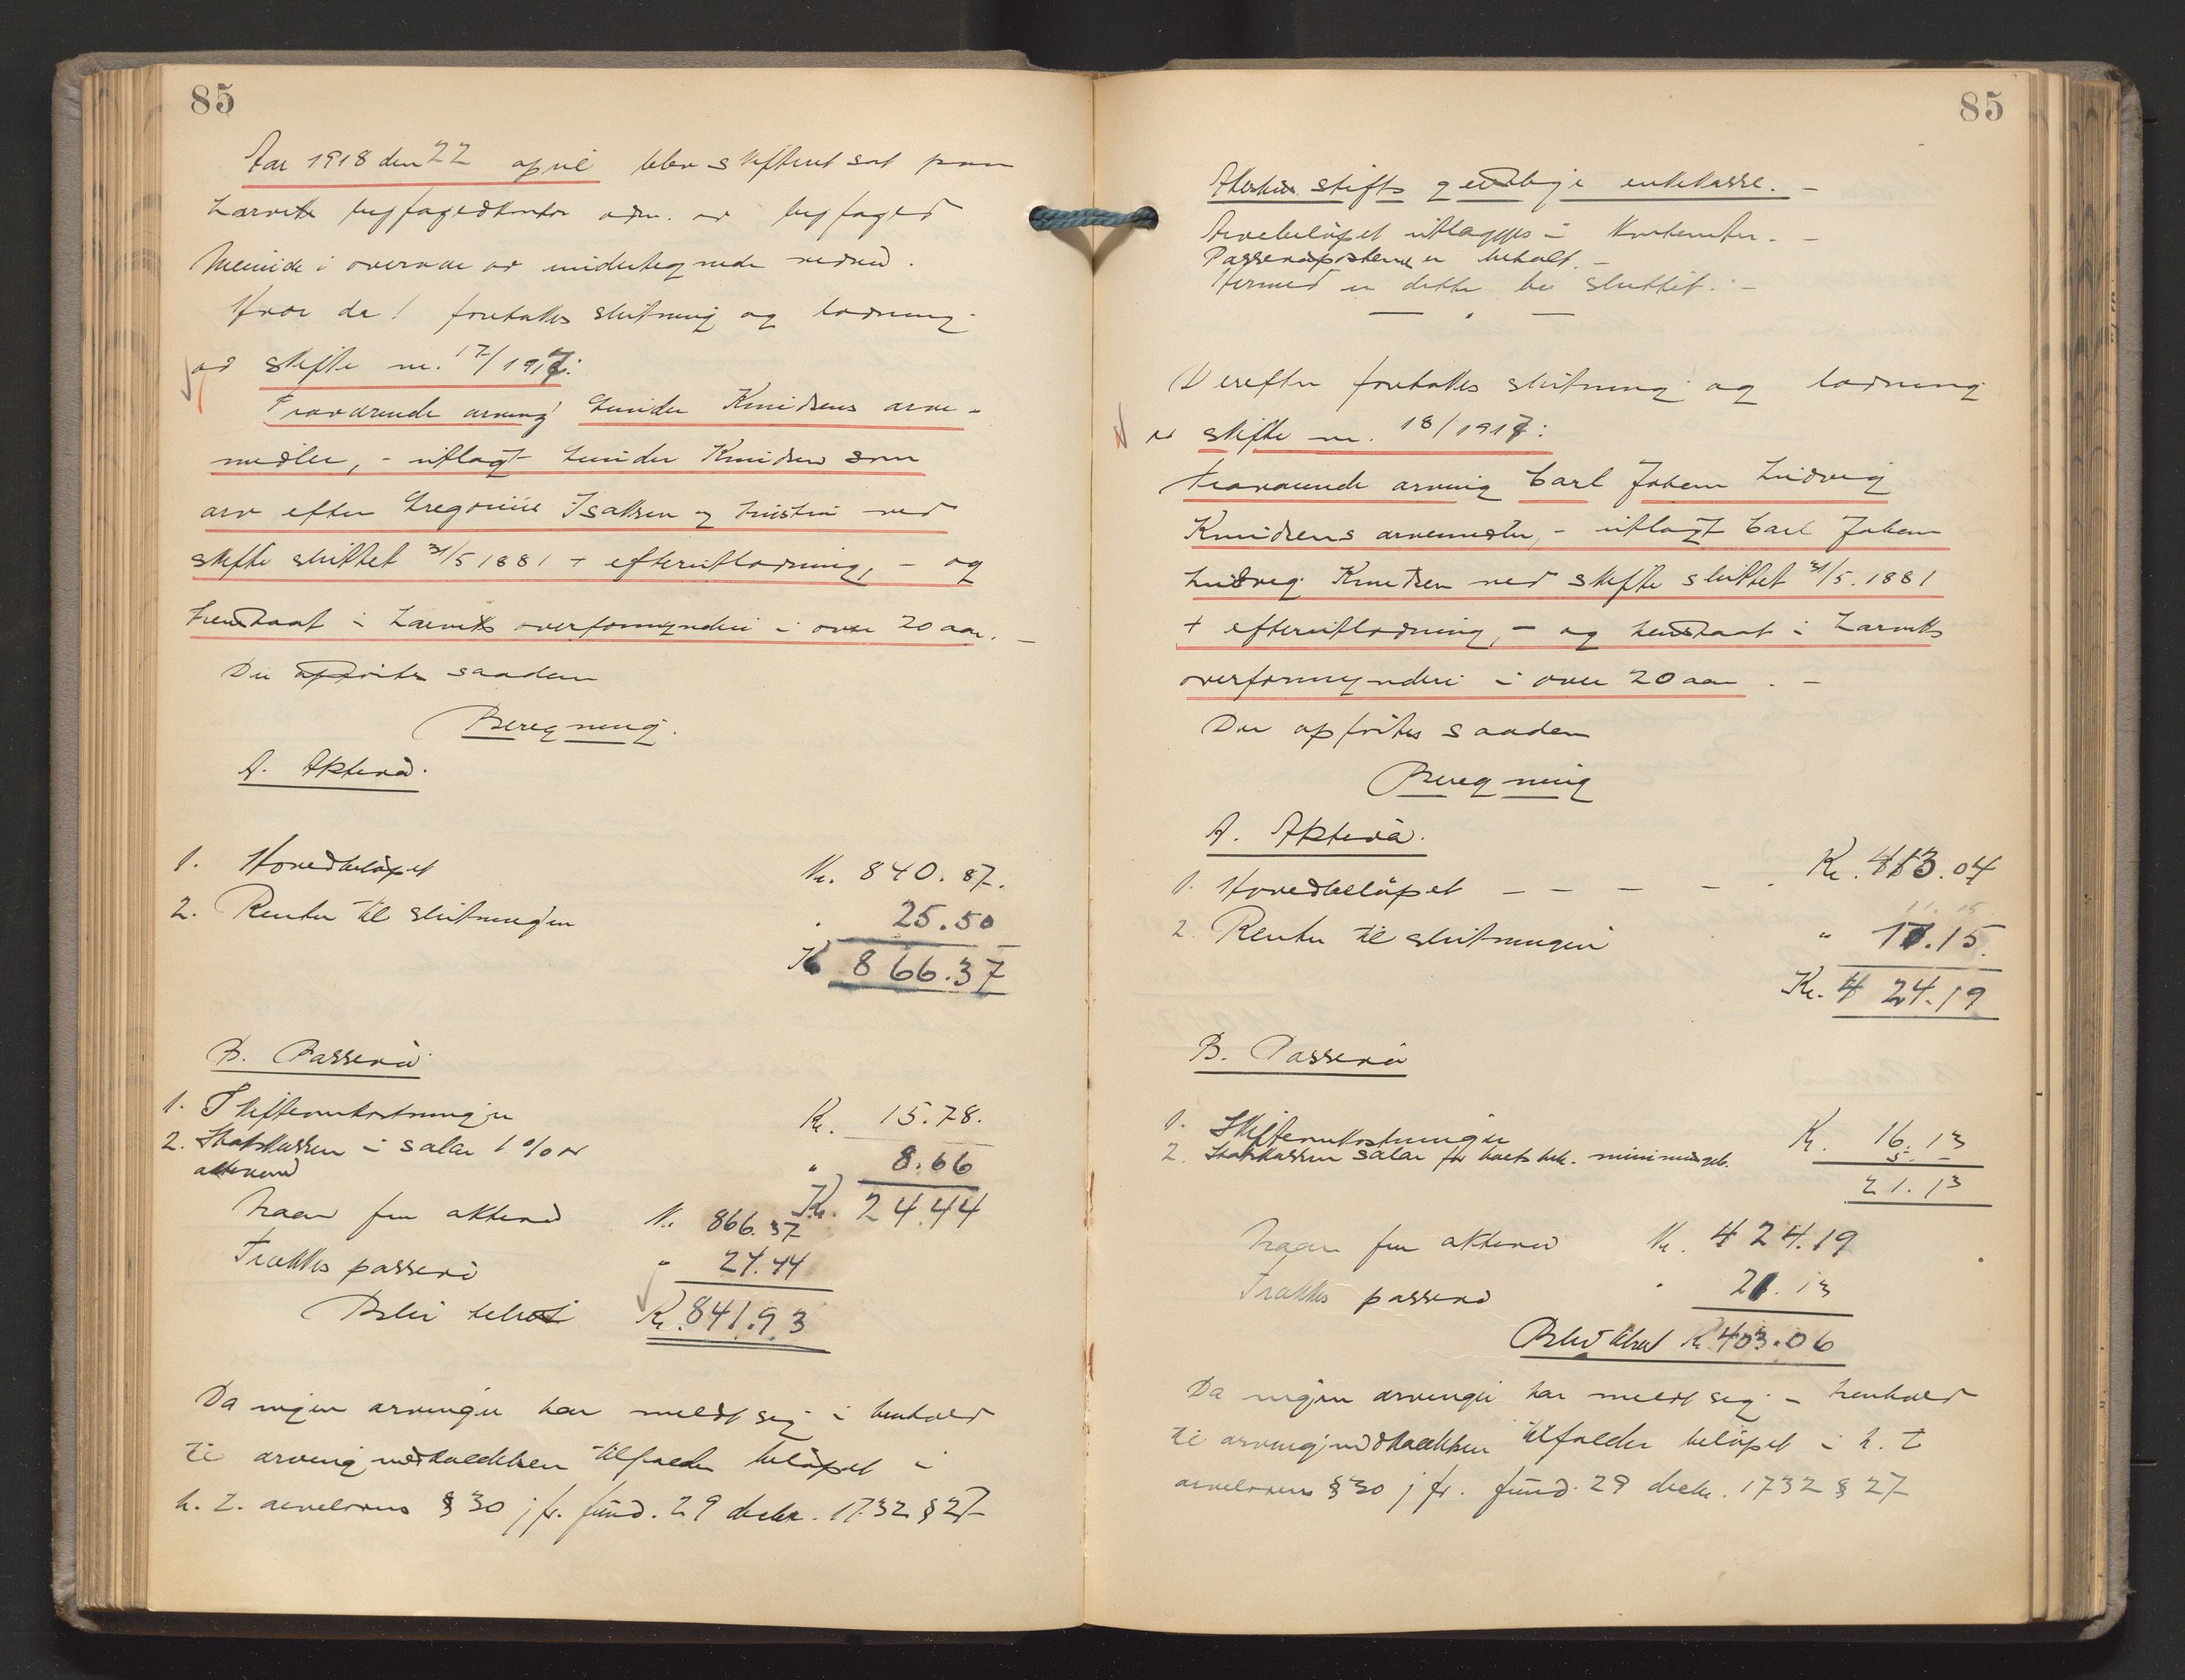 85
Aar 1918 den 22 april blev skifteret sat paa
Larviks byfogedkontor adm. av byfoged
Meinich i overvær av undertegnede vidner.
Hvor da! foretokes slutning og lodning
av skifte nr. 17/1917:
Fraværende arving Gunder Knudsens arve-
midler, - utlagt Gunder Knudsen som
arv efter Gregorius Isaksen og hustru ved
skifte sluttet 31/5 1881 + efterutlodning, - og
henstaat i Larviks overformynderi i over 20 aar. -
Der opførtes saadan
Beregning.
A. Aktiva.
1. Hovedbeløpet Kr. 840.87.
2. Renter til slutningen " 25.50
Kr 866.37
B. Passiva
1. Skifteomkostninger Kr. 15.78.
2. Statskassen i salær 1 % av
aktiva " 8.66
Kr. 24.44
Naar fra aktiva Kr. 866.37
Trækkes passiva " 24.44
Blir behold Kr. 841.93
Da ingen arvinger har meldt sig i henhold
til arvingindkaldelsen tilfalder beløpet i
h. t. arvelovens § 30 jfr. fund. 29 decbr. 1732 § 27
85
Akershus stifts geistlige enkekasse. -
Arvebeløpet utlægges i kontanter. -
Passivaposterne er betalt. -
Hermed er dette bo sluttet. -
Derefter foretokes slutning og lodning
av skifte nr. 18/1917:
Fraværende arving Carl Johan Ludvig
Knudsens arvemidler, - utlagt Carl Johan
Ludvig Knudsen ved skifte sluttet 31/5. 1881
+ efterutlodning, - og henstaat i Larviks
overformynderi i over 20 aar. -
Der opførtes saadan
Beregning
A. Aktiva.
1. Hovedbeløpet - - - - Kr. 413.04
2. Renter til slutningen " 11.15.
Kr. 424.19
B. Passiva
1. Skifteomkostninger Kr. 16.13
2. Statskassen salær for boets beh. minimumsgeb. 5. -
21.13
Naar fra aktiva Kr. 424.19
Trækkes passiva " 21.13
Blir behold Kr 403.06
Da ingen arvinger har meldt sig i henhold
til arvingindkaldelsen tilfalder beløpet i h. t.
arvelovens § 30 jfr. fund. 29 decbr. 1732 § 27